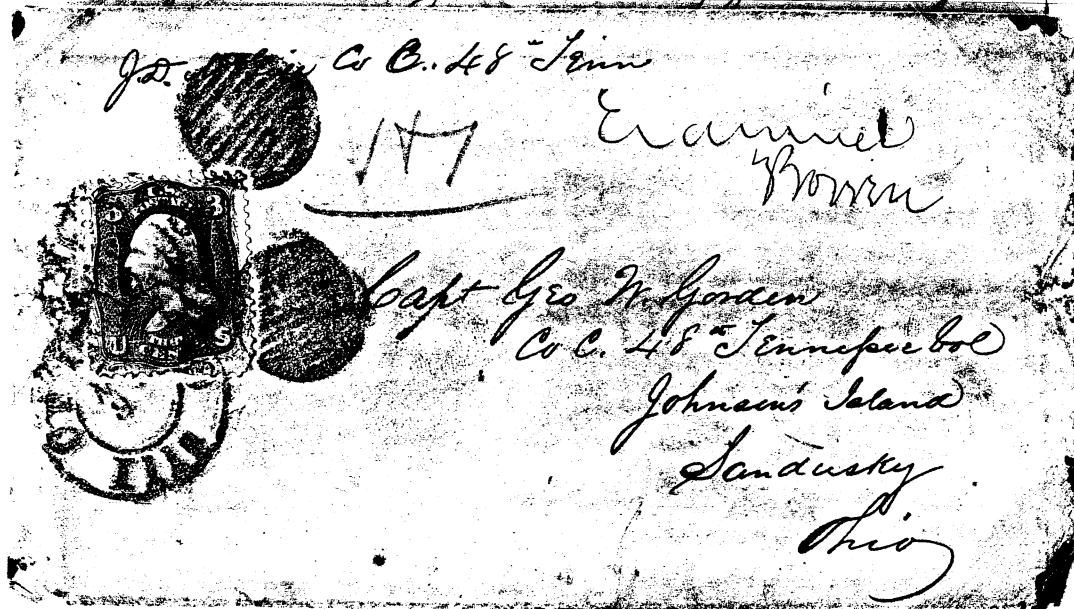 J.D. Co B.. 48th Tenn
Examined
Bowen
Capt Geo W. Gorden
Co C. 48th Tennessee Vol
Johnson's Island
Sandusky
Ohio
3
U S
ILL